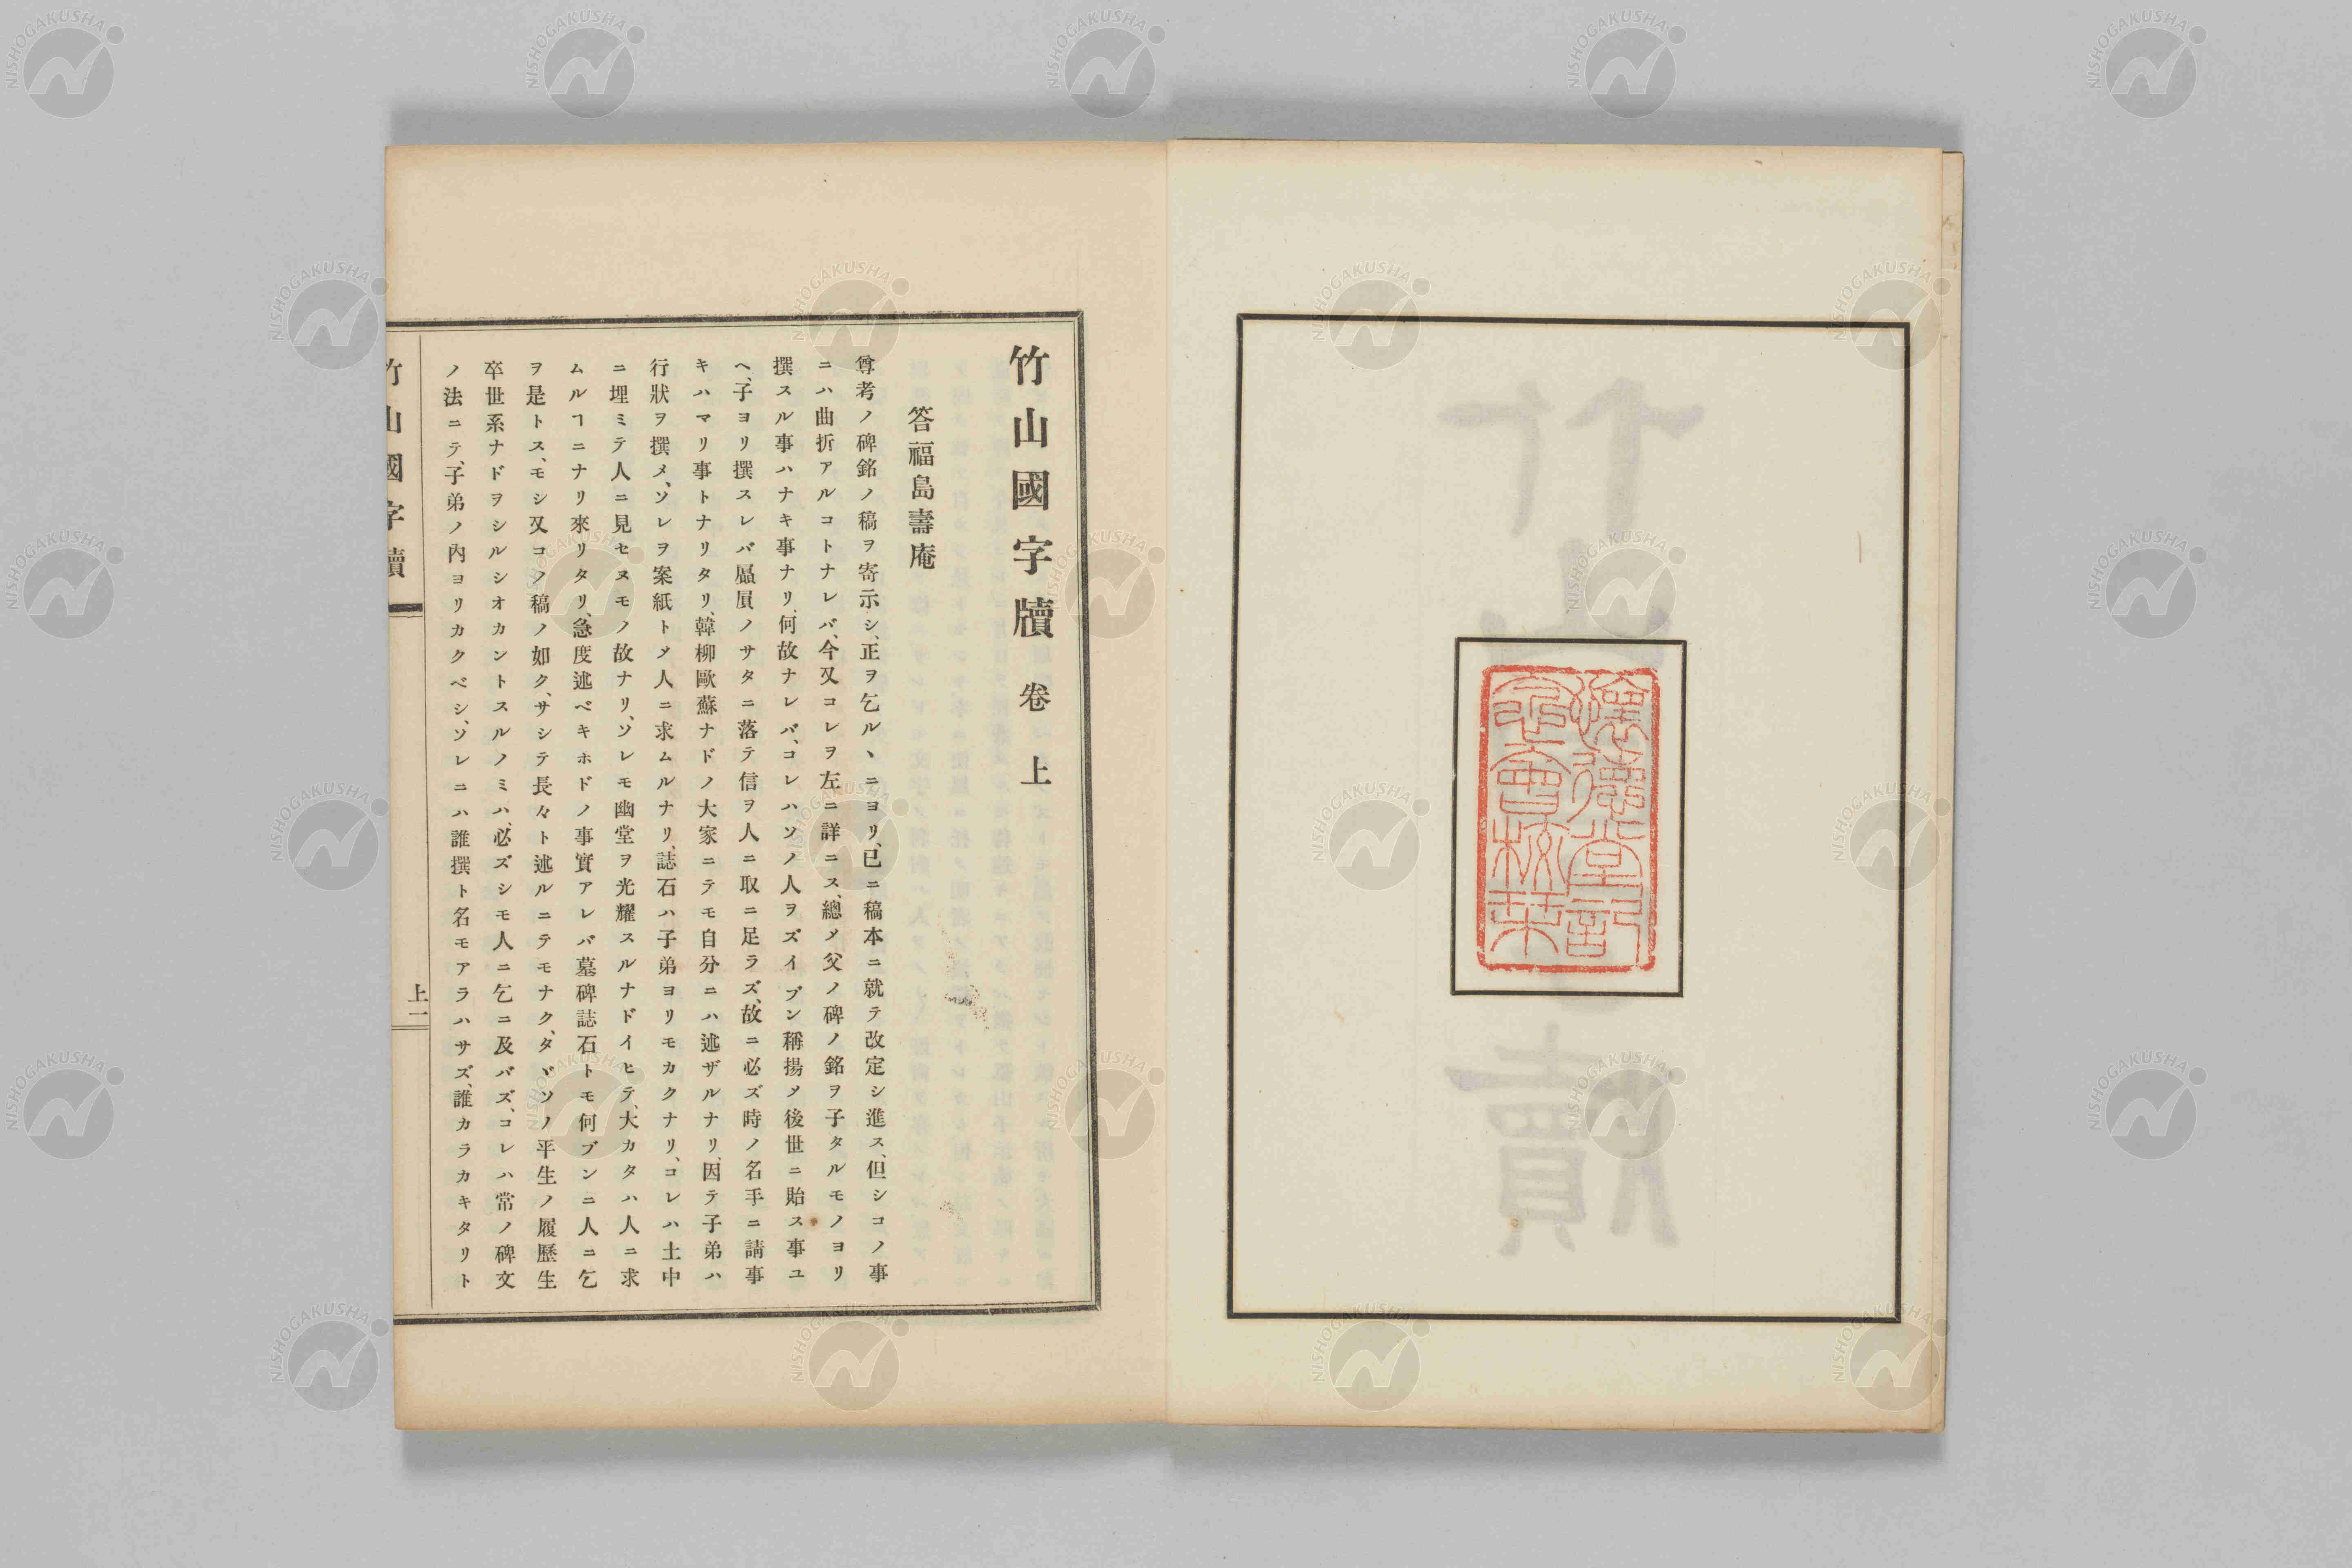 懷德堂記
念會校栞
竹山國字牘卷上
答福島壽庵
尊考ノ碑銘ノ稿ヲ寄示シ、正ヲ乞ル丶ニヨリ、已ニ稿本ニ就テ改定シ進ス、但シコノ事
ニハ曲折アルコトナレバ、今又コレヲ左ニ詳ニス、總メ父ノ碑ノ銘ヲ子タルモノヨリ
撰スル事ハナキ事ナリ、何故ナレバ、コレハソノ人ヲズイブン稱揚メ後世ニ貽ス事ユ
ヘ、子ヨリ撰スレバ贔屓ノサタニ落テ信ヲ人ニ取ニ足ラズ、故ニ必ズ時ノ名手ニ請事
キハマリ事トナリタリ、韓柳歐蘇ナドノ大家ニテモ自分ニハ述ザルナリ、因テ子弟ハ
行狀ヲ撰メ、ソレヲ案紙トメ人ニ求ムルナリ、誌石ハ子弟ヨリモカクナリ、コレハ土中
ニ埋ミテ人ニ見セヌモノ故ナリ、ソレモ幽堂ヲ光耀スルナドイヒテ、大カタハ人ニ求
ムルヿニナリ來リタリ、急度述ベキホドノ事實アレバ墓碑誌石トモ何ブンニ人ニ乞
ヲ是トス、モシ又コノ稿ノ如ク、サシテ長々ト述ルニテモナク、タヾソノ平生ノ履歷生
卒世系ナドヲシルシオカントスルノミハ、必ズシモ人ニ乞ニ及バズ、コレハ常ノ碑文
ノ法ニテ、子弟ノ內ヨリカクベシ、ソレニハ誰撰ト名モアラハサズ、誰カラカキタリト
竹山國字牘
上一
NISHOGAKUSHA